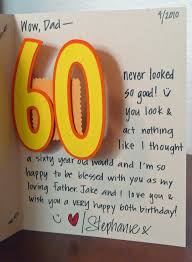 9/2010
Wow, Dad—
60
never looked
so good! ü
you look &
act nothing
like I thought
a sixty year old would and I'm so
happy to be blessed with you as my
loving father. Jake and I love you &
wish you a very happy 60th birthday!
ü ♥ / Stephanie x